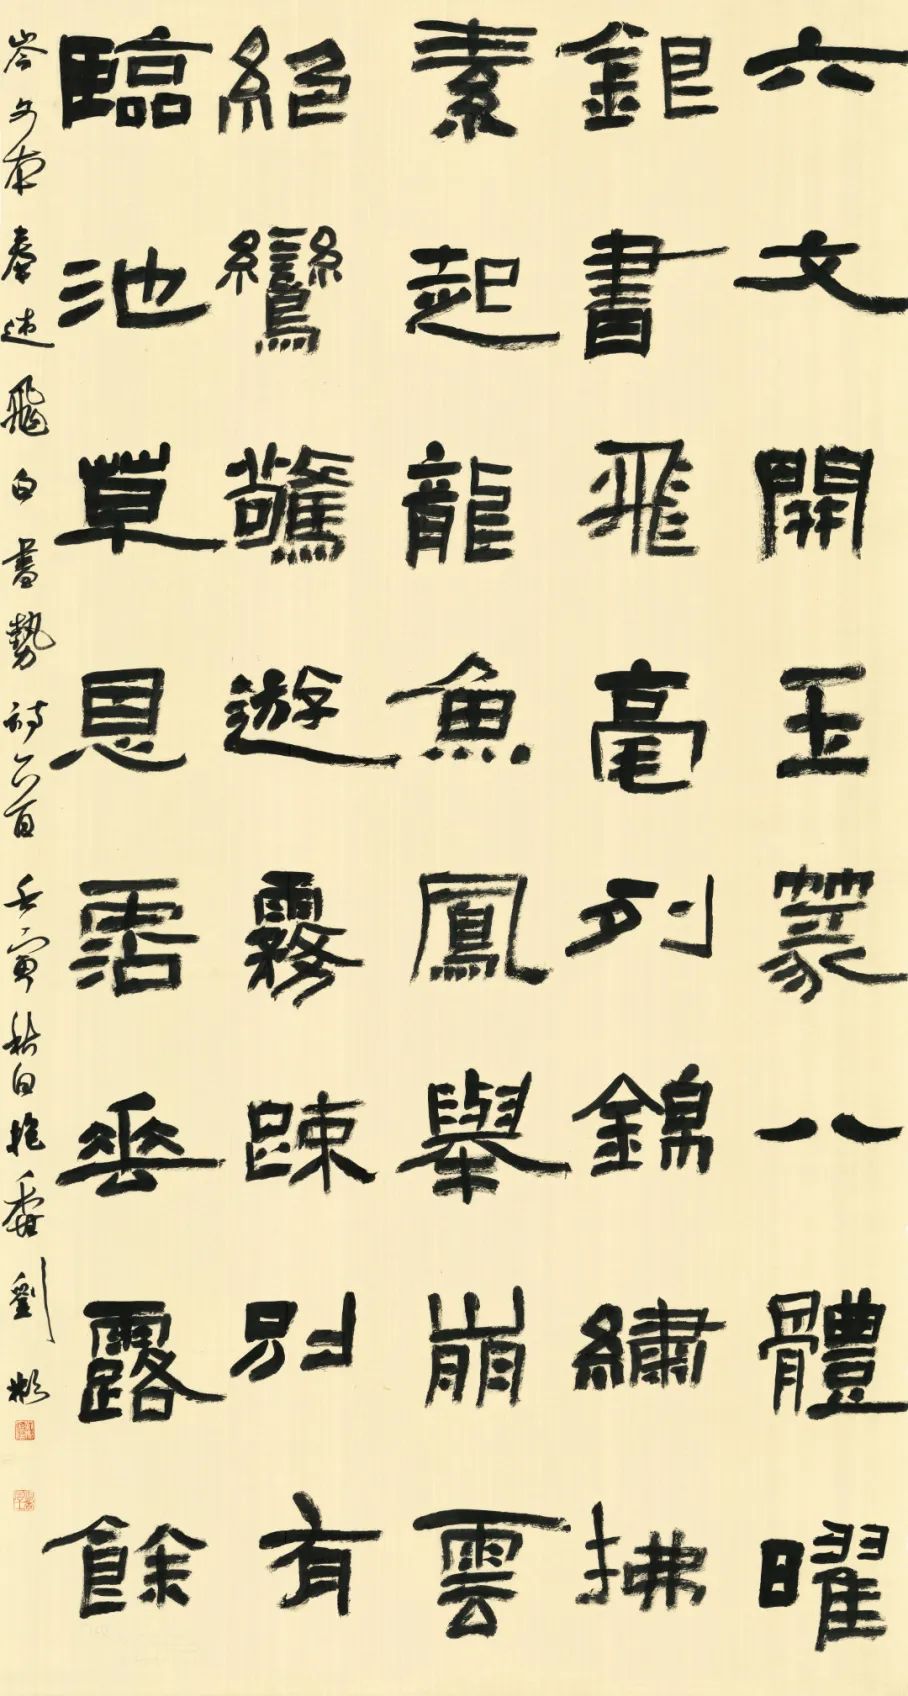 六文開玉篆八體曜
銀書飛毫列錦繡拂
素起龍魚鳳舉崩雲
絕鸞驚遊霧疎別有
臨池草恩霑垂露餘
岑文本奉述飛白書勢詩一首壬寅秋日劉